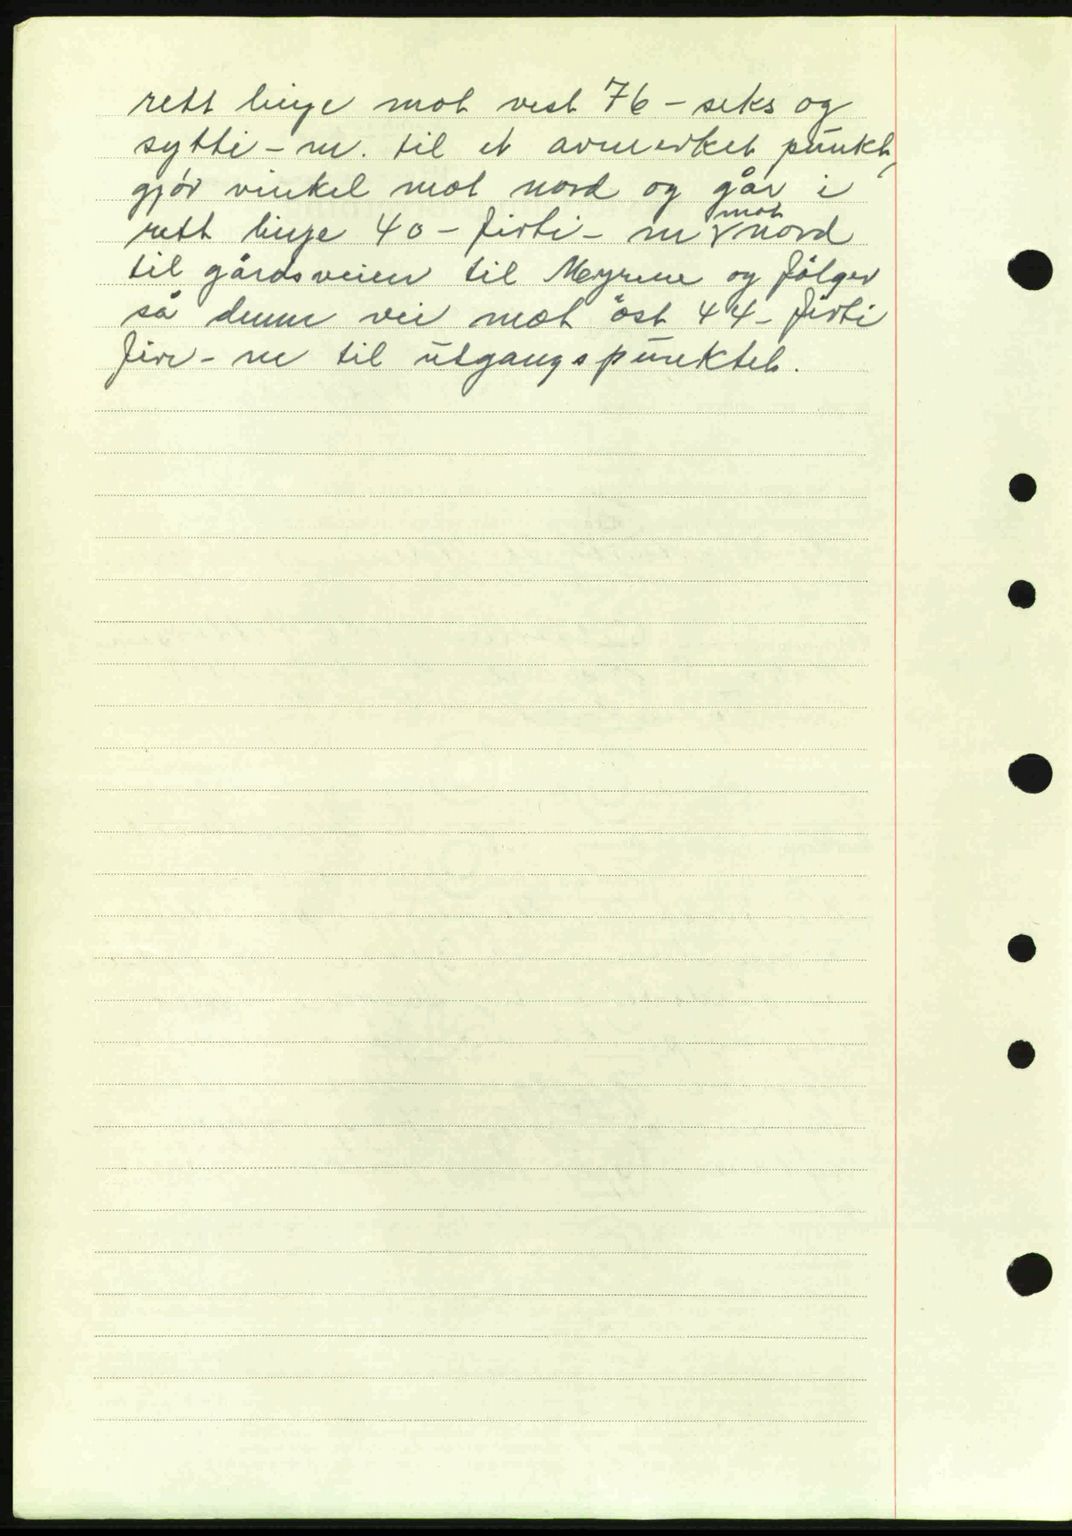 rett linje mot vest 76 – seks og
sytti – m. til et avmerket punkt,
gjör vinkel mot nord og går i
rett linje 40 – firti – m mot nord
til gårdsveien til Meyrene og fölger
så denne vei mot öst 44 – firti
fire – m til utgangspunktet.